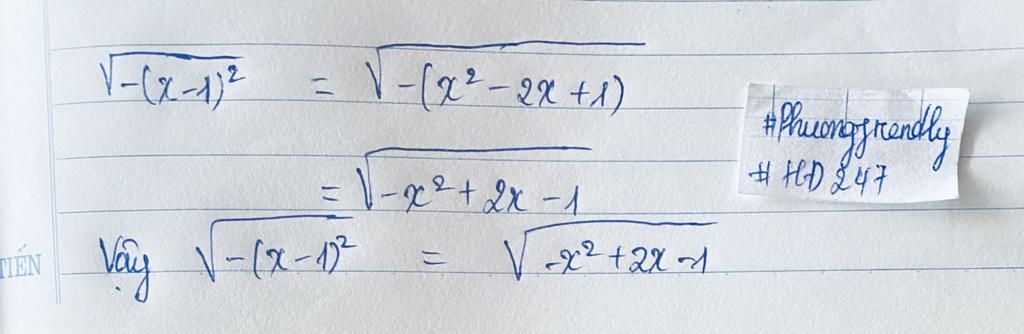 √-(x-1)² = √-(x² - 2x + 1)
= √-x² + 2x - 1
Vậy √-(x-1)² = √-x² + 2x - 1
#Phuongfrendly
# HD 247
TIẾN